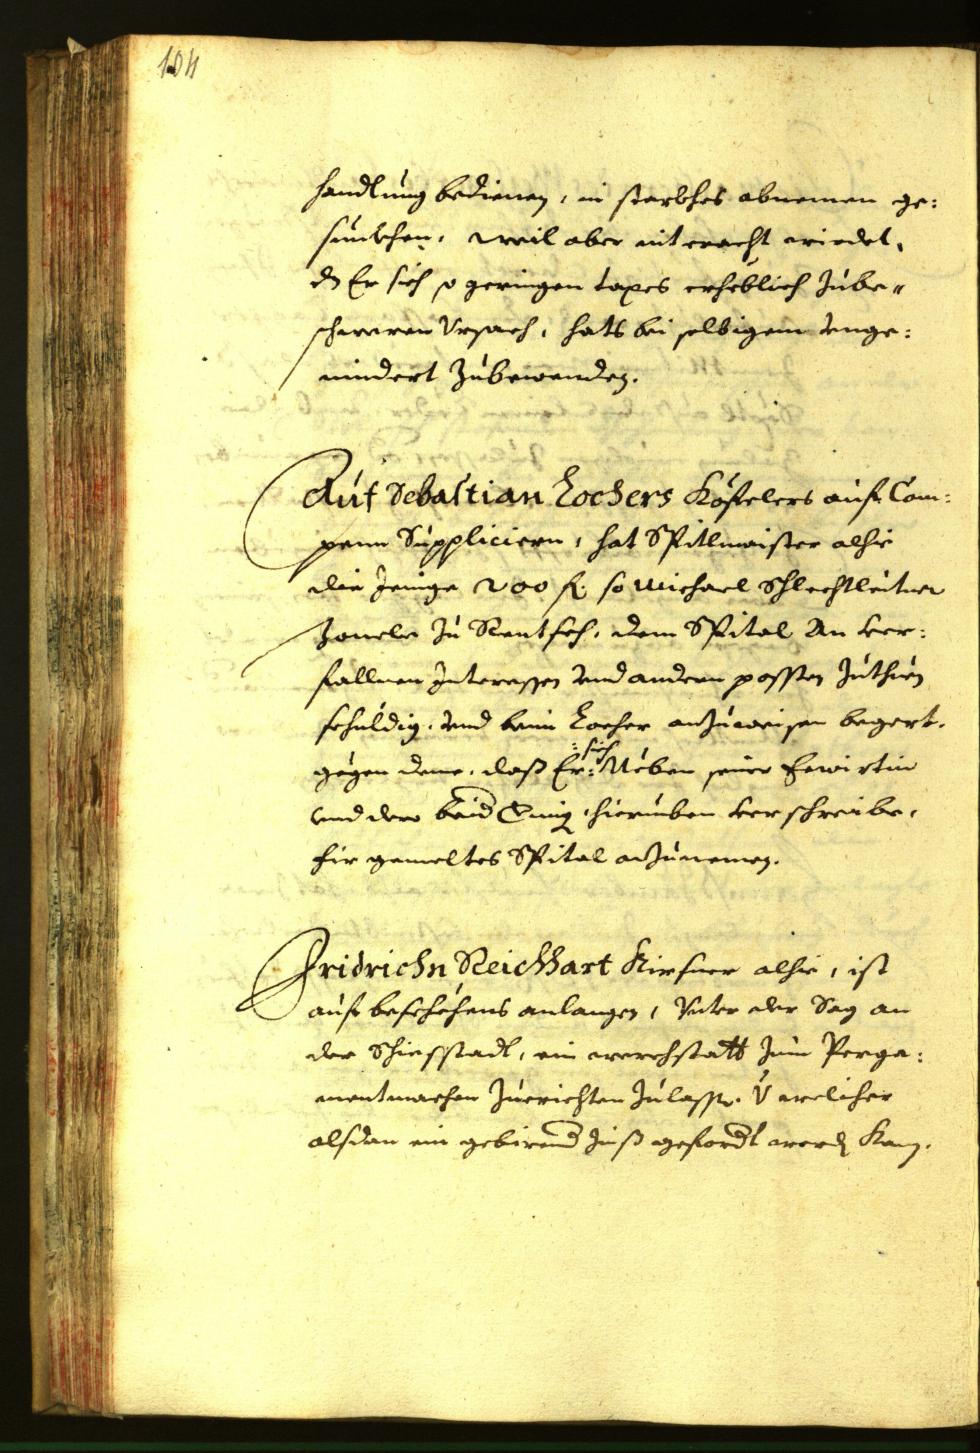 104
handlung bedienen, in starckhes abnemen ge:
sunckhen, weil aber nit eracht wirdet,
dz Er sich so geringen taxes erheblich zube„
schweren Ursach, hats bei selbigem unge:
mindert zubewenden.
Auf Sebastian Lochers Köstelers auf Com:
penn Suppliciern, hat Spitlmaister alhie
die Jenige 200 fl. so Michael Schlechtleitner
zu Rentsch, dem Spital An ver:
fallnen Interessen und andern possten zuthuen
schuldig, und beim Locher anzuweisen begert,
gegen deme, daß Er: :sich: Neben seiner Ewirtin
und dero beid hierumben verschreibe,
fir gemeltes Spital anzunemen.
Fridrichn Reichhart Kirsner alhie, ist
auf beschehens anlangen, Unter der Sag an
der Schiesstadl, ein werchstatt zum Perga:
mentmachen zuerichten zulassen. Von welicher
alsdan ein gebirend Zinß gefordt werdn kan.